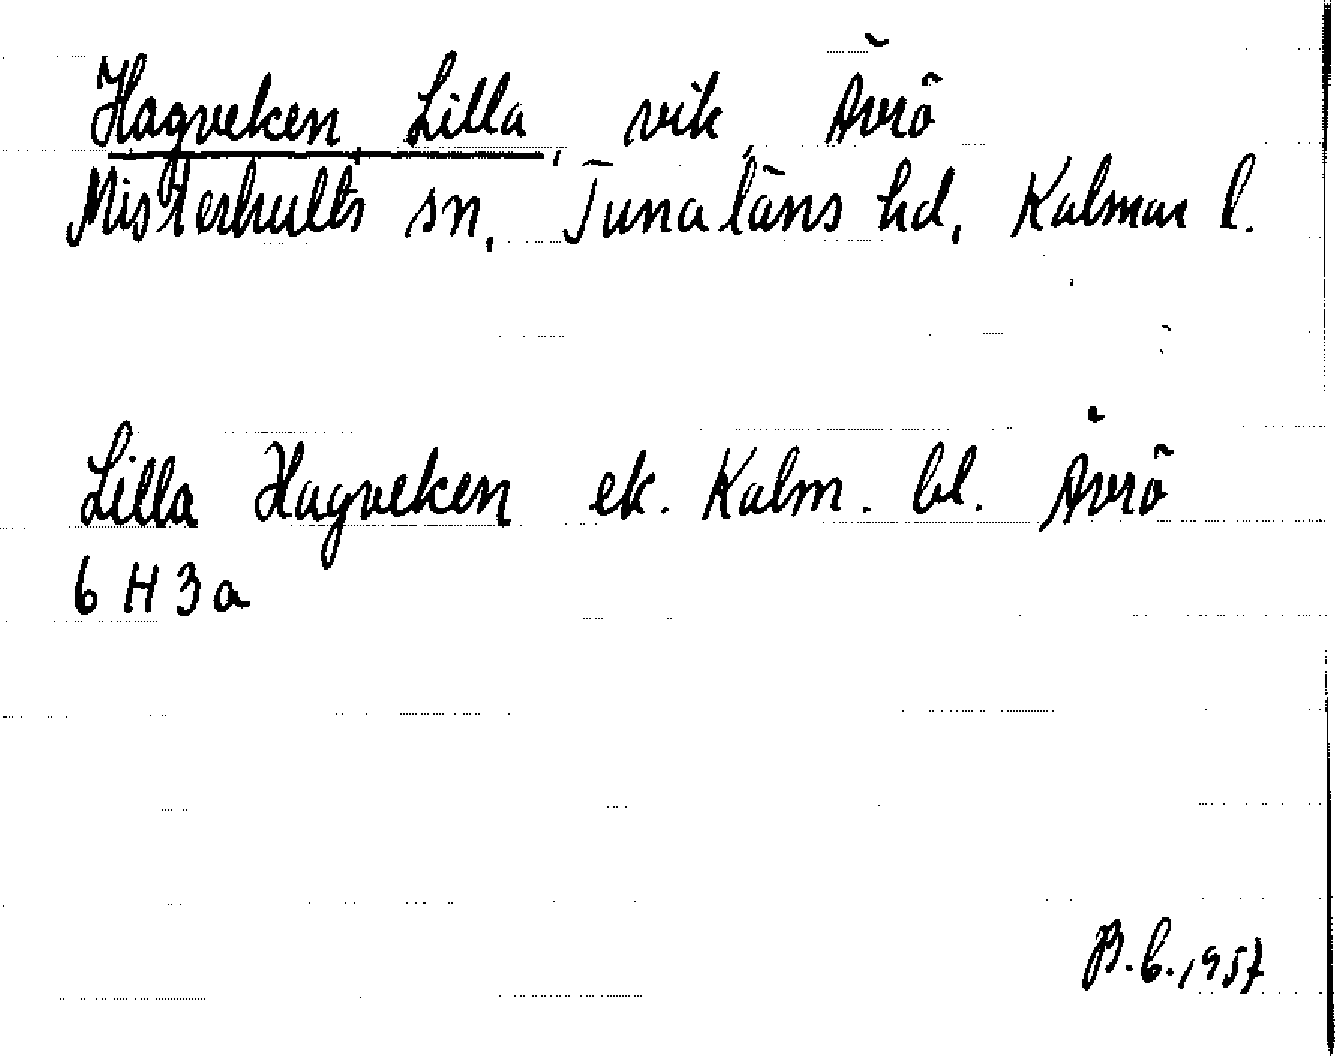 Hagveken, Lilla, vik, Ävrö
Misterhults sn, Tunaläns hd, Kalmar l.
Lilla Hagveken ek. Kalm. bl. Ävrö
6 H 3 a
B.b. 1957